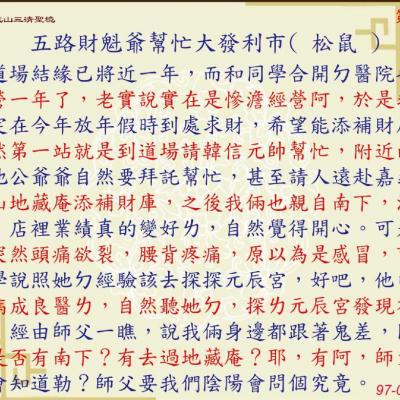 山三清聖境
五路財魁爺幫忙大發利市( 松鼠 )
道場結緣已將近一年，而和同學合開ㄉ醫院
營一年了，老實說實在是慘澹經營阿，於是
定在今年放年假時到處求財，希望能添補財
然第一站就是到道場請韓信元帥幫忙，附近
地公爺爺自然要拜託幫忙，甚至請人遠赴嘉
山地藏庵添補財庫，之後我倆也親自南下，
，店裡業績真的變好ㄌ，自然覺得開心。可
突然頭痛欲裂，腰背疼痛，原以為是感冒，
學說照她ㄉ經驗該去探探元辰宮，好吧，他
病成良醫ㄌ，自然聽她ㄉ、探ㄌ元辰宮發現
。經由師父一瞧，說我倆身邊都跟著鬼差，
是否有南下？有去過地藏庵？耶，有阿，師
會知道勒？師父要我們陰陽會問個究竟。 97-0